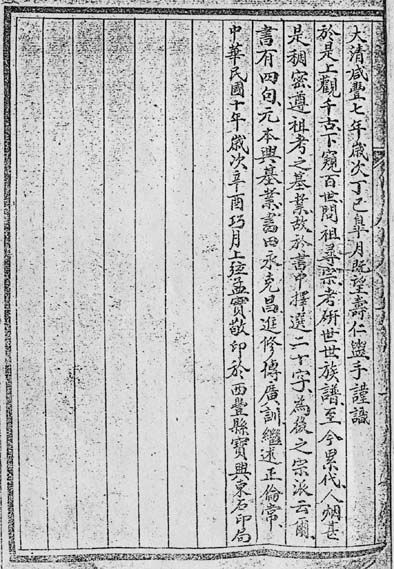 大清咸豐七年歲次丁巳皐月既望壽仁盥手謹識
於是上觀千古下窺百世問祖尋宗考硏世世族譜至今累代人烟甚
是稠密遵祖考之基業故於書中擇選二十字、為後之宗派云爾、
書有四句、元本興基業、書田永克昌、進修傳廣訓、繼述正倫常、
中華民國十年歲次辛酉巧月上弦孟寶敬印於西豐縣寶興東石印局